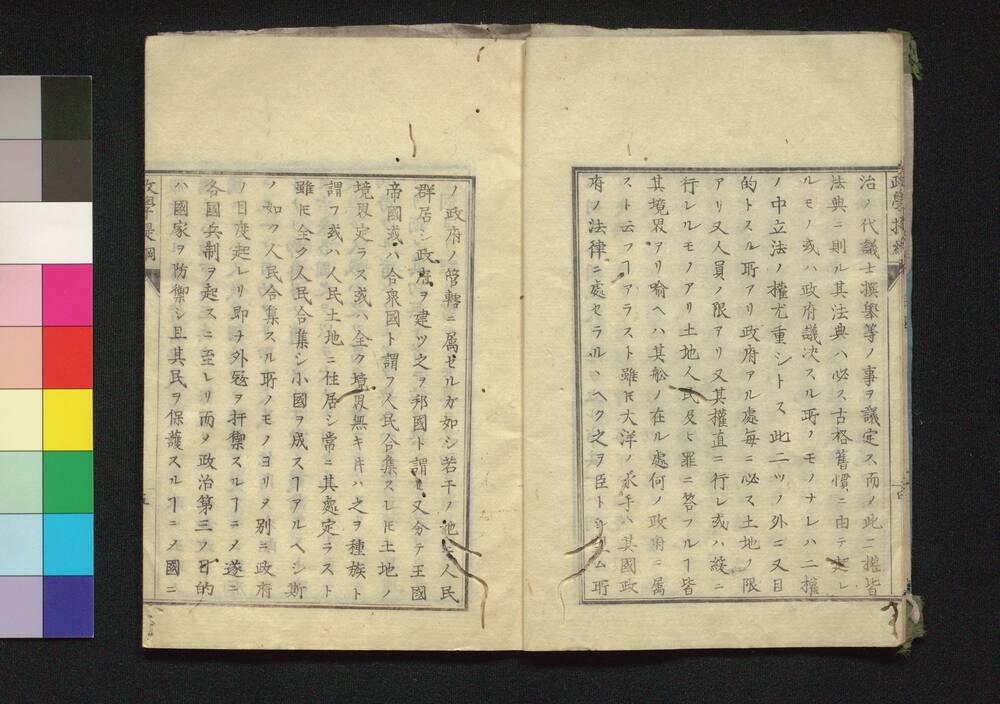 治ノ代議士撰擧等ノ事ヲ議定ス而ノ此二權皆
法典ニ則ル其法典ハ必ス古格舊慣ニ由テ起レ
ルモノ或ハ政府議決スル所ノモノナレハ二權
ノ中立法ノ權尤重シトス此二ツノ外ニ又目
的トスル所アリ政府アル處毎ニ必ス土地ノ限
アリ又人員ノ限アリ又其權直ニ行レ或ハ緩ニ
行レルモノアリ土地人民及ヒ罪ニ答フルヿ皆
其境界アリ喩ヘハ其舩ノ在ル處何ノ政府ニ属
スト云フヿアラスト雖𪜈大洋ノ水手ハ其國政
府ノ法律ニ處セラルヘク之ヲ臣トシ理ム所
ノ政府ノ管轄ニ属セルカ如シ若干ノ地ニ人民
群居シ政府ヲ建ツ之ヲ邦國ト謂ヒ又分テ王國
帝國或ハ合衆國ト謂フ人民合集スレ𪜈土地ノ
境界定ラス或ハ全ク境界無キ𪜈ハ之ヲ種族ト
謂フ或ハ人民土地ニ住居シ常ニ其處定ラスト
雖𪜈全ク人民合集シ小國ヲ成スヿアルヘシ斯
ノ如ク人民合集スル所ノモノヨリノ別ニ政府
ノ目度起レリ即チ外冦ヲ扞禦スルヿニノ遂ニ
各国兵制ヲ起スニ至レリ而ノ政治第三ノ目的
ハ國家ヲ防禦シ且其民ヲ保護スルヿニノ國ニ
政學提綱